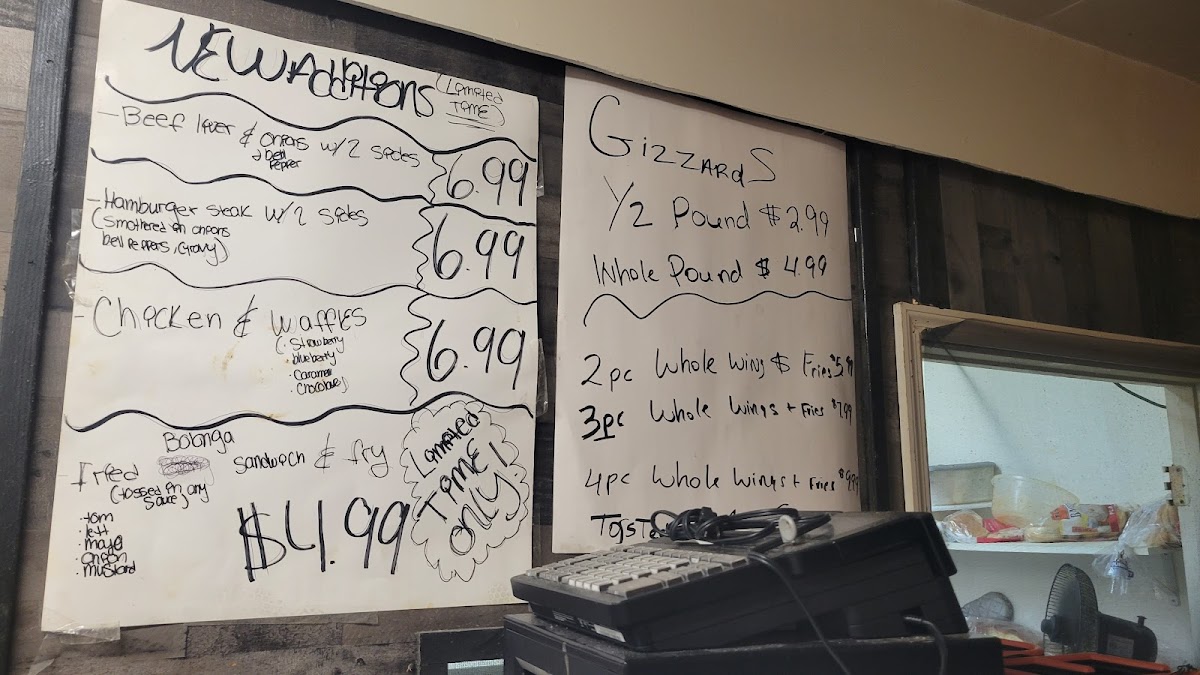 NEW Additions
(Limited
Time)
- Beef liver & onions w/2 sides
& bell
pepper
6.99
- Hamburger steak w/2 sides
(smothered in onions
bell peppers, gravy)
6.99
- Chicken & Waffles
(. Strawberry
. blueberry
. Caramel
. Chocolate)
6.99
Bolonga
- Fried sandwich & fry
(tossed in any
sauce)
. tom
. lett
. mayo
. onion
. mustard
$4.99
Limited
Time!
Only
Gizzards
1/2 Pound $2.99
Whole Pound $4.99
2pc Whole Wing $ Fries $5.99
3pc Whole Wings + Fries $7.99
4pc Whole Wings + Fries